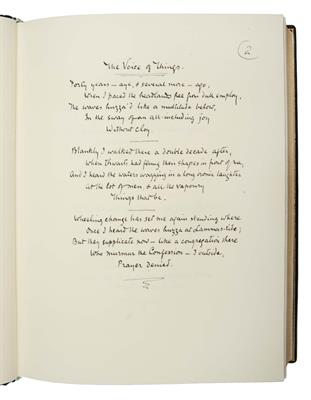 2
The Voice of Things.
Forty years — aye, & several more — ago,
When I paced the headlands free from dull employ,
The waves huzza'd like a multitude below,
In the sway of an all-including joy
Without cloy.
Blankly I walked there a double decade after,
When thwarts had flung their shapes in front of me,
And I heard the waters wagging in a long ironic laughter
At the lot of men, & all the vapoury
Things that be.
Wheeling change has set me again standing where
Once I heard the waves huzza at Lammas-tide;
But they supplicate now — like a congregation there
Who murmur the Confession — I outside,
Prayer denied.